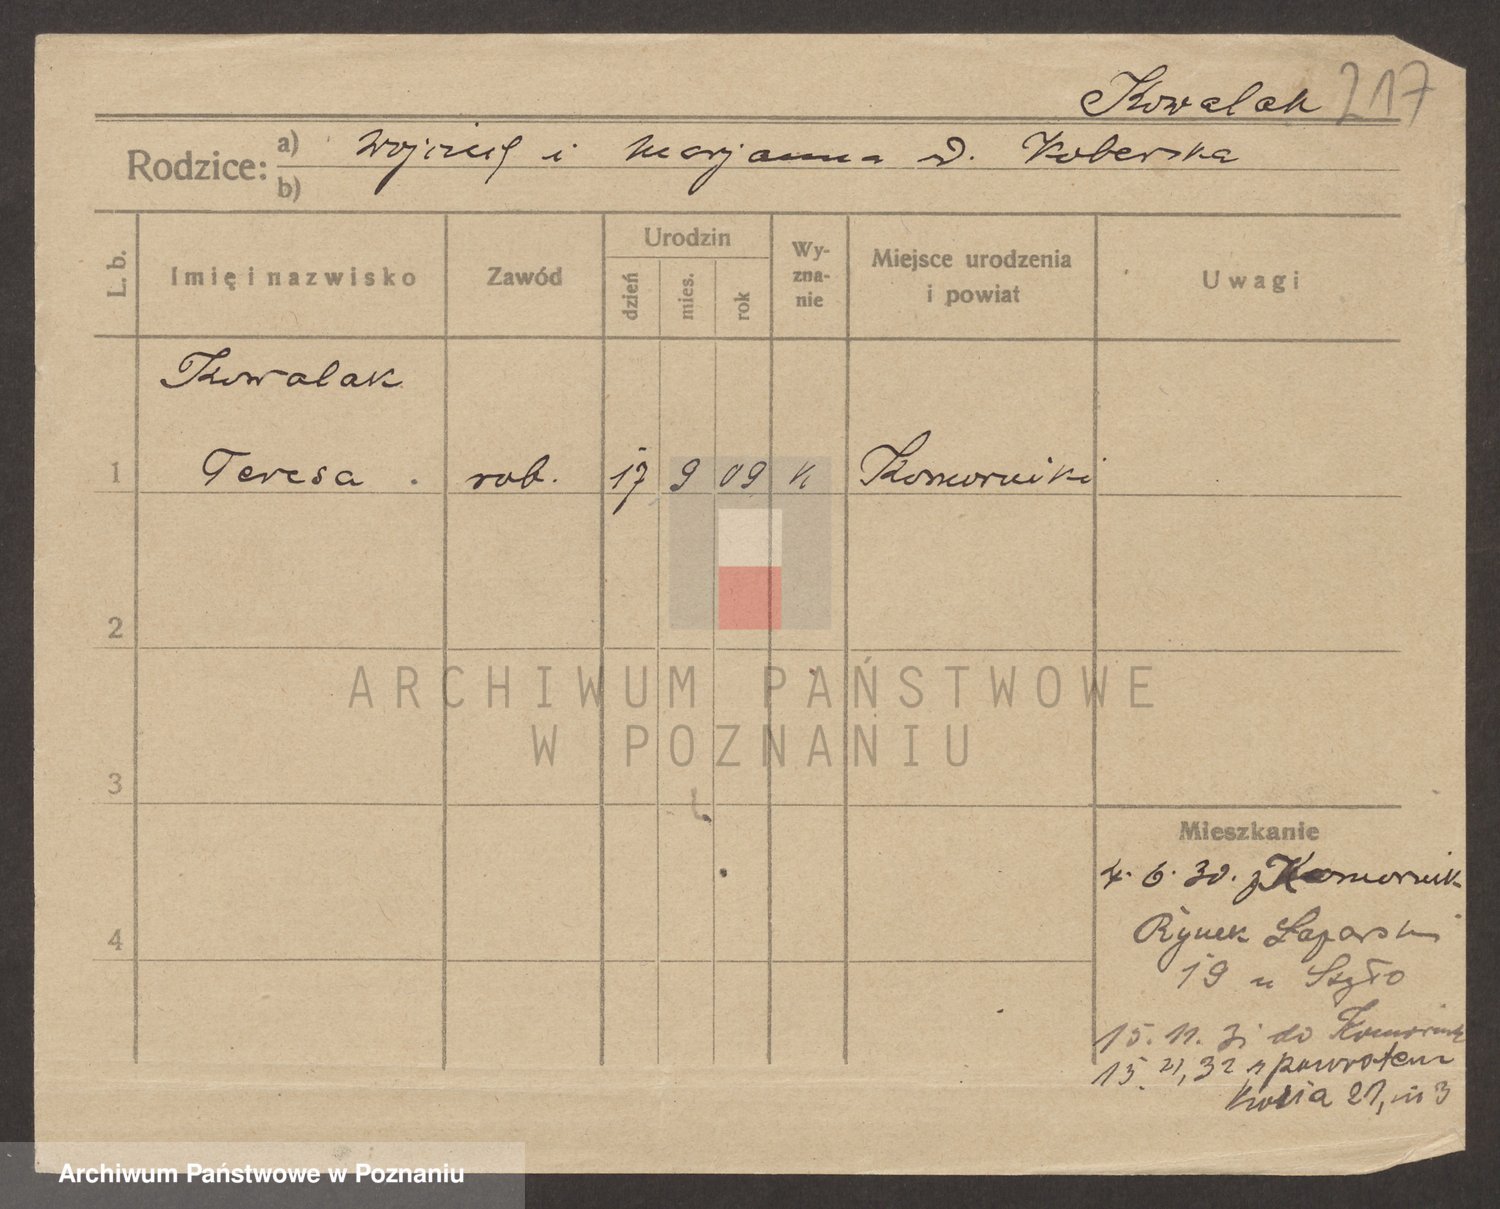 Kowalak 217
Rodzice: a) Wojciech i Marjanna d. Koberska
b)
L. b. Imię i nazwisko Zawód Urodzin dzień mies. rok Wyzna-nie Miejsce urodzenia i powiat Uwagi
Kowalak
1 Teresa . rob. 17 9 09 k Komorniki
2
ARCHIWUM PAŃSTWOWE
W POZNANIU
3
Mieszkanie
4. 6. 30. z Komornik
4
Rynek Łazarski
19 u Szyło
15. 11. 31 do Komornik
15. 32 z powrotem
Kozia 21, m 3
Archiwum Państwowe w Poznaniu